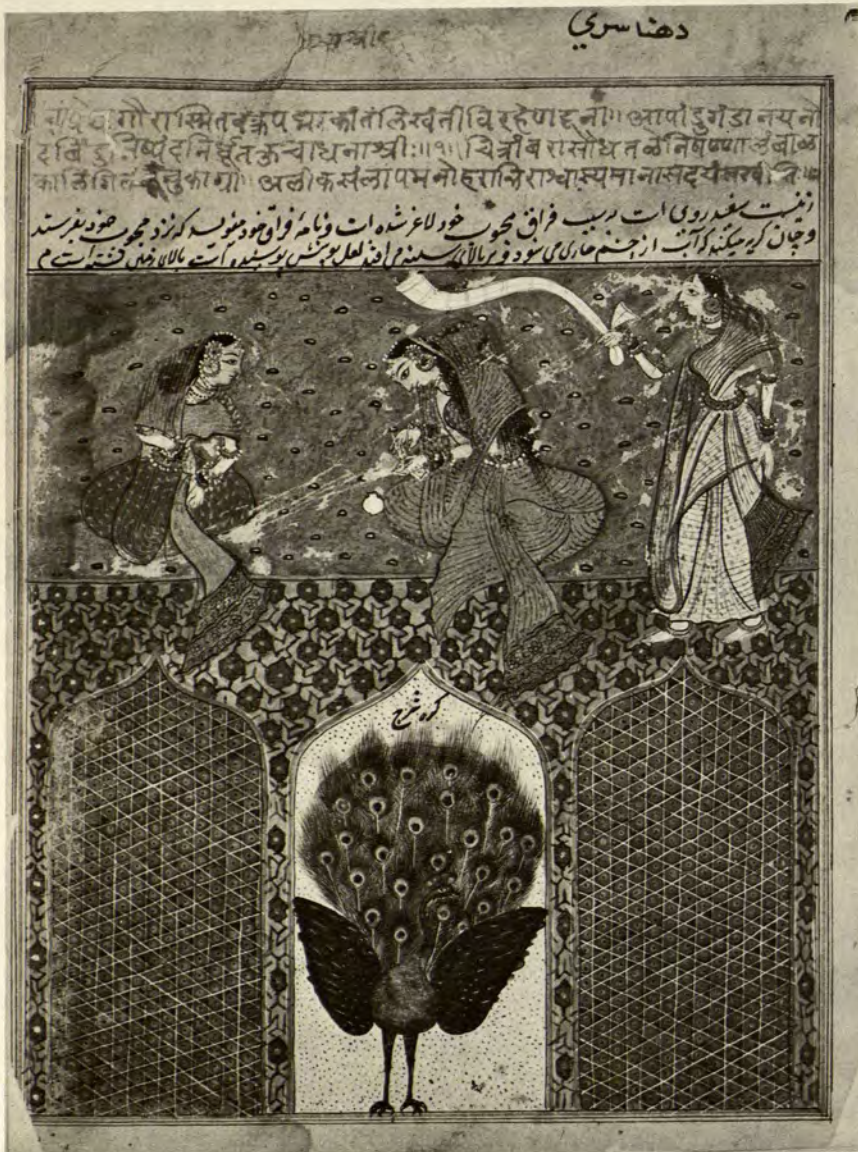 دهناسري
गौरास्मितवक्त्रपद्म कांतंलिखंतीविरहेणदूना॥आपांडुगंडानयनो
दबिंदुनिष्पंदनिर्धूतकुचाधनाश्रीः॥१॥ चित्रांबरासौधतळेनिषण्णालंबाळ
अलीकसंलापमनोहराभिराश्वास्यमानासदयंसखीभिः॥
زنیست سفید روی است بسبب فراق محبوب خود لاغر شده است و نامهٔ فراق خود مینویسد که نزد محبوب خود بفرستد
و چنان گریه میکند که آب از چشم جاری می شود و بر بالای سینه می افتد لعل پوشش پوشیده است نشسته است
کره خرج